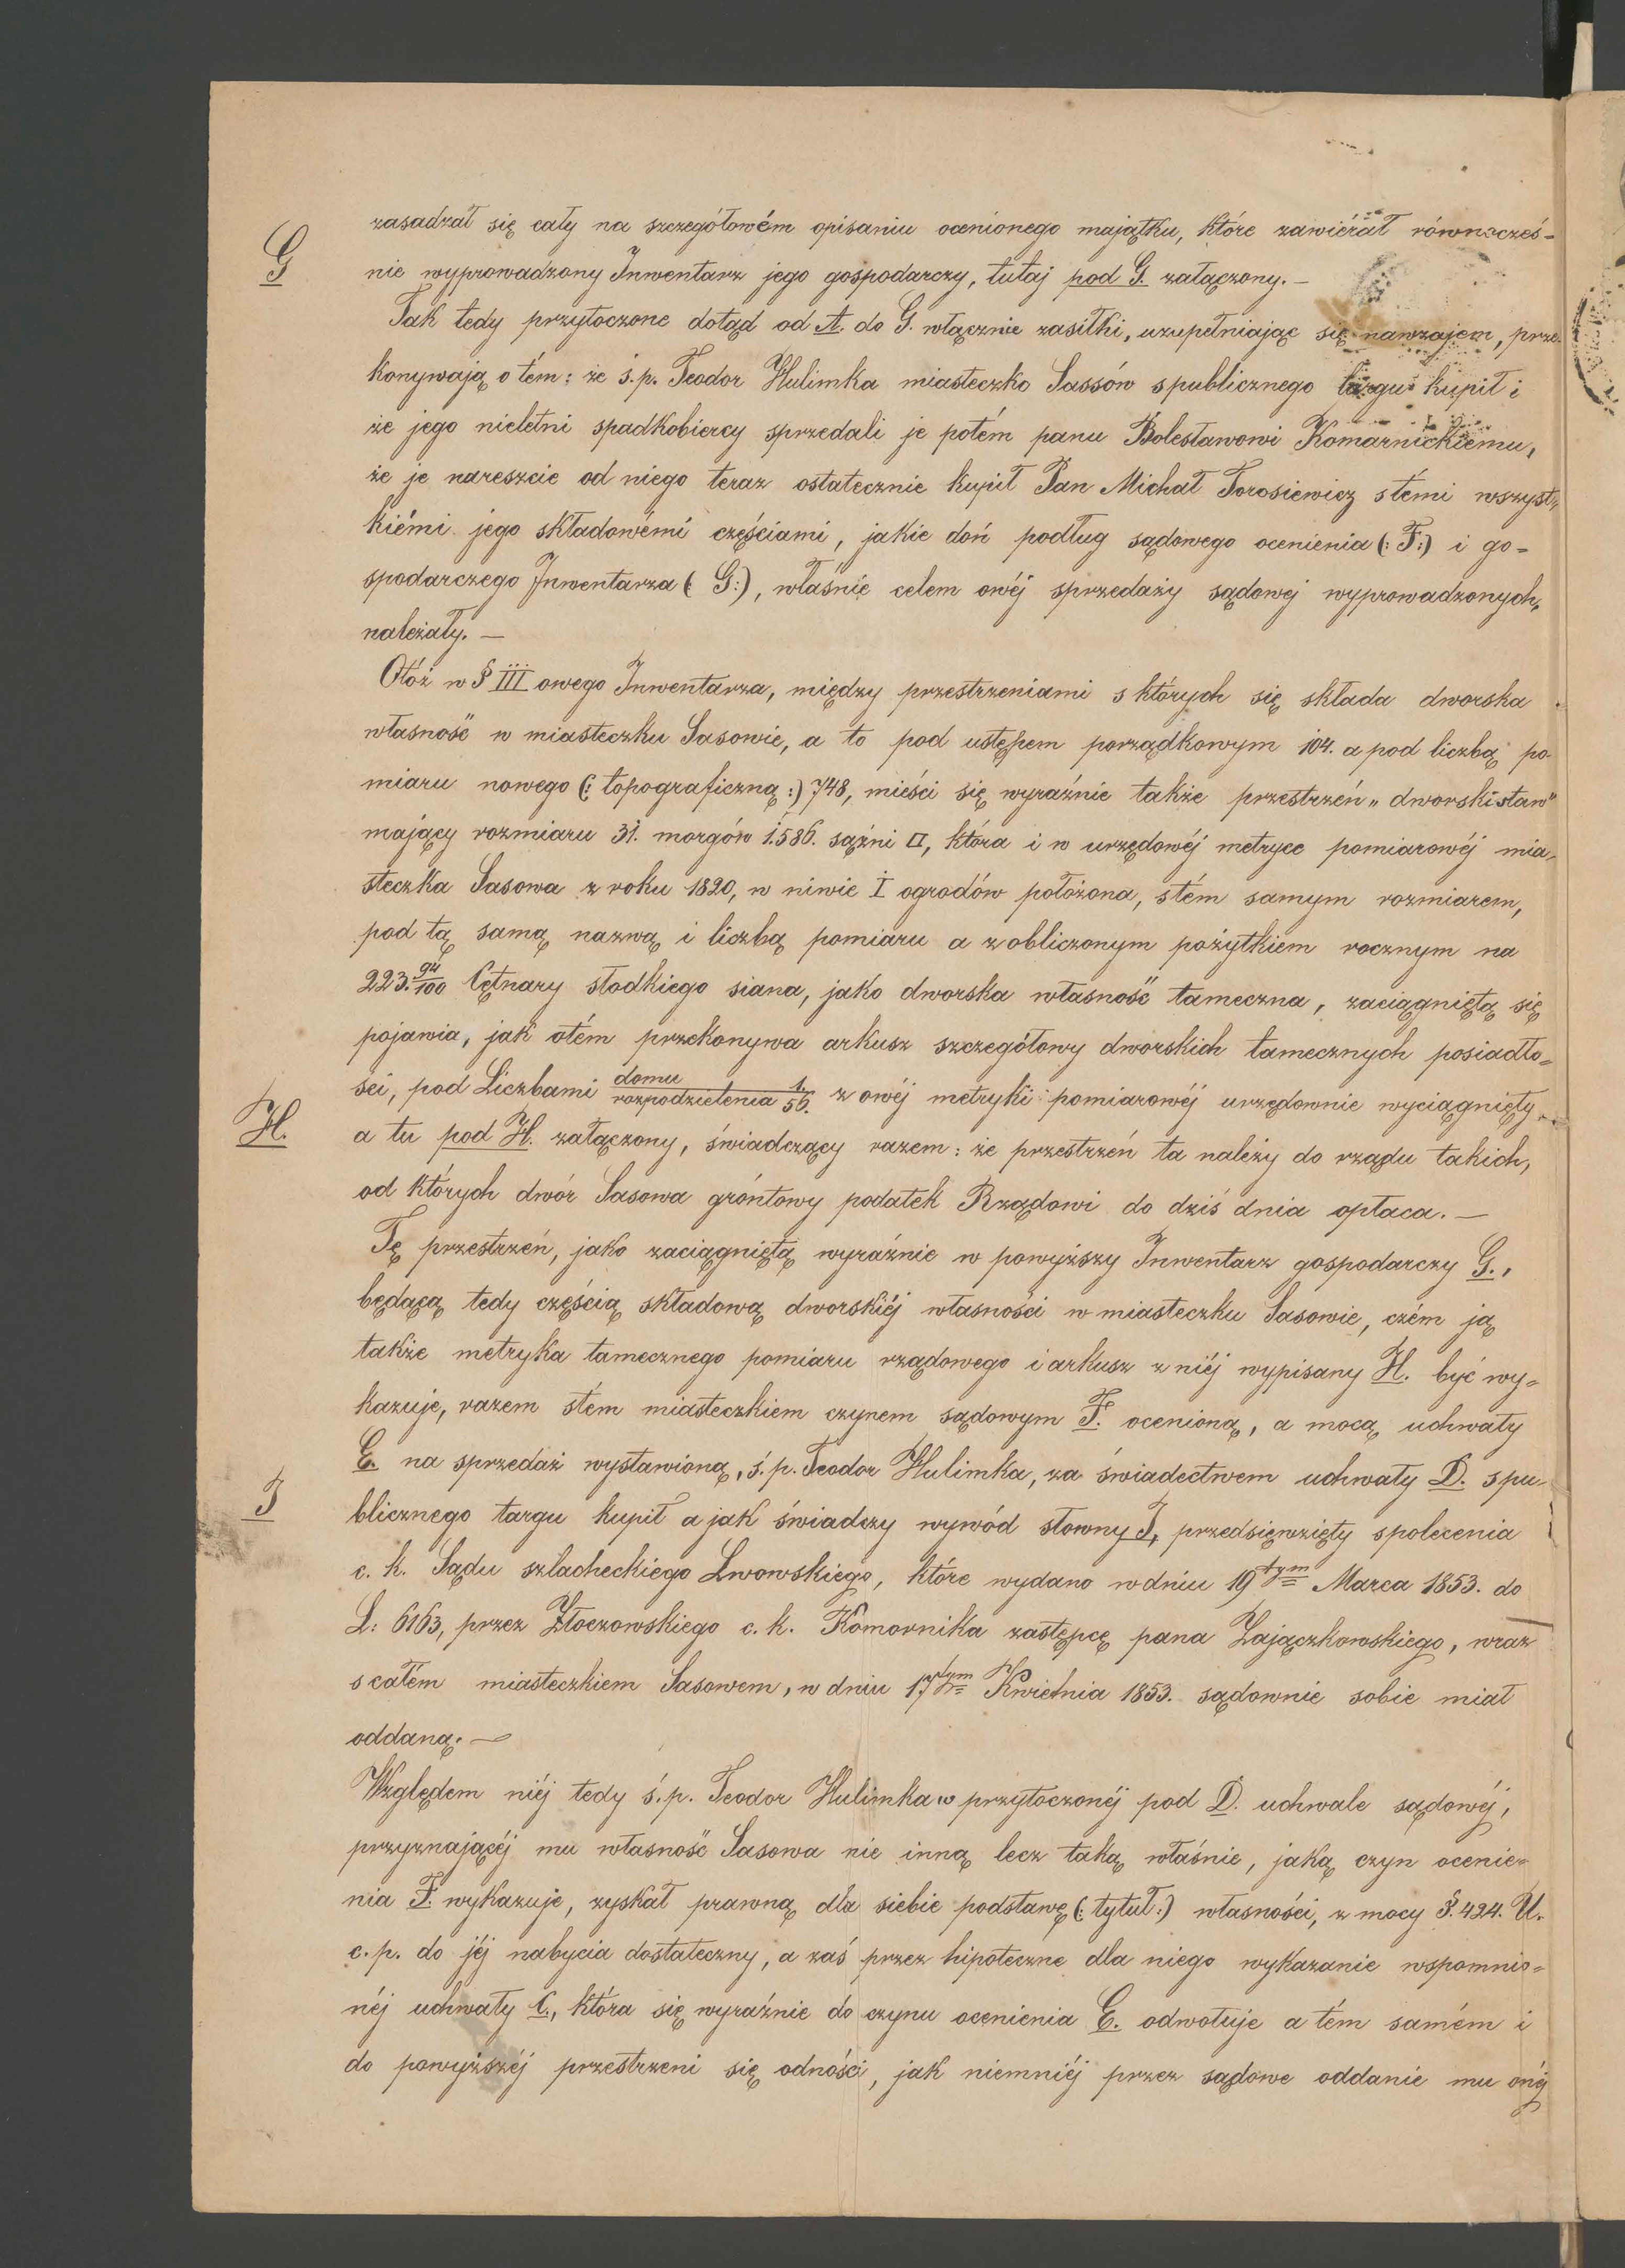 zasadzał się cały na szczegółowém opisaniu ocenionego majątku, które zawiérał równocześ=
G
nie wyprowadzony Inwentarz jego gospodarczy, tutaj pod G. załączony.—
Tak tedy przytoczone dotąd od A do G. włącznie zasiłki, uzupełniając się nawzajem, prze=
konywają o tém: że ś.p. Teodor Hulimka miasteczko Sassów spublicznego targu kupił i
że jego nieletni spadkobiercy sprzedali je potém panu Bolesławowi Komarnickiemu,
że je nareszcie od niego teraz ostatecznie kupił Pan Michał Torosiewicz stémi wszyst=
kiémi jego składowémi częściami, jakie doń podług sądowego ocenienia (: F:) i go=
spodarczego Inwentarza (: G:), właśnie celem owéj sprzedaży sądowej wyprowadzonych,
należały.—
Otóż w § III owego Inwentarza, między przestrzeniami s których się składa dworska
własność w miasteczku Sasowie, a to pod ustępem porządkowym 104. a pod liczbą po=
miaru nowego (: topograficzną :) 748, mieści się wyraźnie także przestrzeń „dworski staw"
mający rozmiaru 31. morgów 1.586. sążni □, która i w urzędowéj metryce pomiarowéj mia=
steczka Sasowa z roku 1820, w niwie I ogrodów położona, stém samym rozmiarem,
pod tą samą nazwą i liczbą pomiaru a zobliczonym pożytkiem rocznym na
223. 94/100 Cętnary słodkiego siana, jako dworska własność tameczna, zaciągniętą się
pojawia, jak otém przekonywa arkusz szczegółowy dworskich tamecznych posiadło=
ści, pod Liczbami domu 1./rozpodzielenia 56. z owéj metryki pomiarowéj urzędownie wyciągnięty
H.
a tu pod H. załączony, świadczący razem: że przestrzeń ta należy do rządu takich,
od których dwór Sasowa gróntowy podatek Rządowi do dziś dnia opłaca.—
Tę przestrzeń, jako zaciągniętą wyraźnie w powyższy Inwentarz gospodarczy G.,
będącą tedy częścią składową dworskiéj własności w miasteczku Sasowie, czém ją
także metryka tamecznego pomiaru rządowego i arkusz z niéj wypisany H. być wy=
kazuje, razem stém miasteczkiem czynem sądowym F. ocenioną, a mocą uchwały
E. na sprzedaż wystawioną, ś.p. Teodor Hulimka, za świadectwem uchwały D. spu=
J
blicznego targu kupił a jak świadczy wywód słowny J, przedsięwzięty spolecenia
c. k. Sądu szlacheckiego Lwowskiego, które wydano w dniu 19tym Marca 1853. do
L: 6163, przez Złoczowskiego c. k. Komornika zastępcę pana Zajączkowskiego, wraz
scałém miasteczkiem Sasowem, w dniu 17tym Kwietnia 1853. sądownie sobie miał
oddaną.—
Względem niéj tedy ś.p. Teodor Hulimka w przytoczonéj pod D. uchwale sądowéj,
przyznającéj mu własność Sasowa nie inną lecz taką właśnie, jaką czyn ocenie=
nia F. wykazuje, zyskał prawną dla siebie podstawę (: tytuł:) własności, z mocy §. 424. U.
c. p. do jéj nabycia dostateczny, a zaś przez hipoteczne dla niego wykazanie wspomnio=
néj uchwały C., która się wyraźnie do czynu ocenienia E. odwołuje a tém samém i
do powyższéj przestrzeni się odności, jak niemniéj przez sądowe oddanie mu onéj